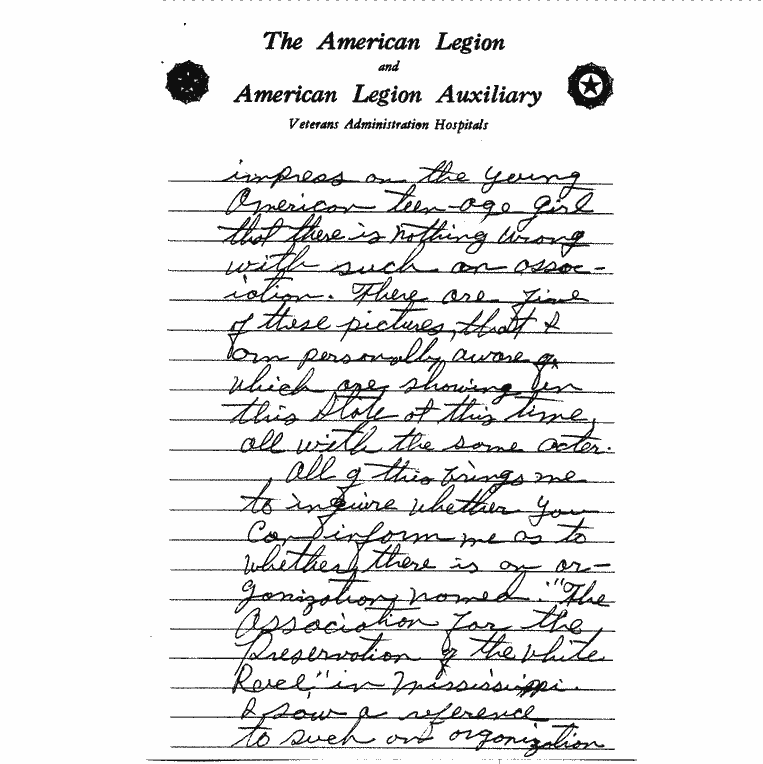 The American Legion
and
American Legion Auxiliary
Veterans Administration Hospitals
impress on the young
American teen-age girl
that there is nothing wrong
with such an assoc-
iation. There are five
of these pictures, that I
am personally aware of,
which are showing in
this State at this time,
all with the same actor.
All of this brings me
to inquire whether you
can inform me as to
whether there is an or-
ganization named. "The
Association for the
Preservation of the White
Race" in Mississippi.
I saw a reference
to such an organization